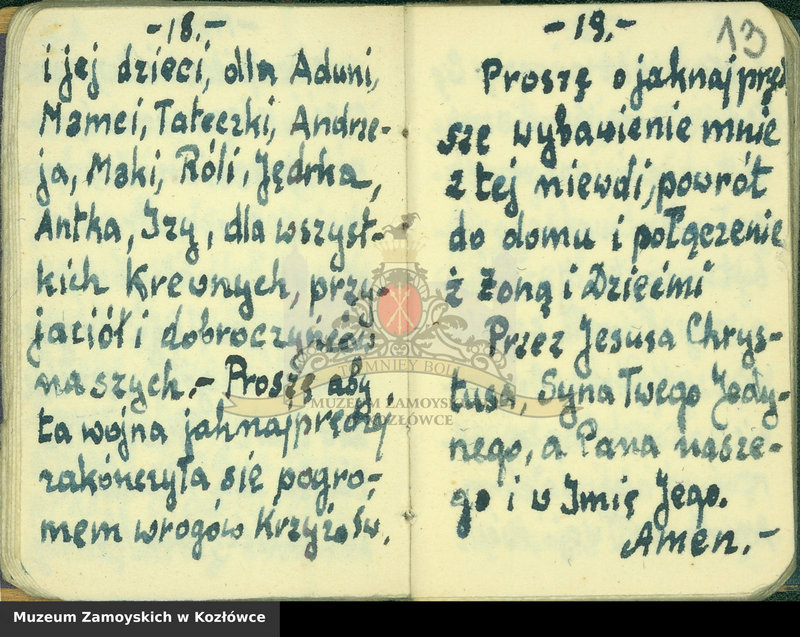 -18.-
i jej dzieci, dla Aduni,
Mamci, Tateczki, Andrze-
ja, Maki, Róli, Jędrka,
Antka, Izy, dla wszyst-
kich Krewnych, przy-
jaciół i dobroczyńców
naszych.- Proszę aby
ta wojna jaknajprędzej
zakończyła się pogro-
mem wrogów Krzyża Św.
-19.-
13
Proszę o jaknajpręd
sze wybawienie mnie
z tej niewoli, powrót
do domu i połączenie
z Żoną i Dziećmi
Przez Jesusa Chrys-
tusa, Syna Twego Jedy-
nego, a Pana nasze-
go i w Imię Jego.
Amen.-
TO MNIEY BOLI
MUZEUM ZAMOYSKICH
W KOZŁÓWCE
Muzeum Zamoyskich w Kozłówce